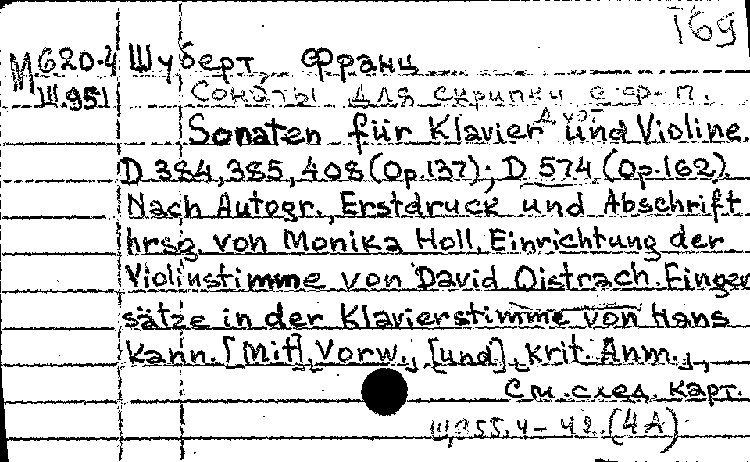 169
М620-4 Шуберт, Франц
Ш.951 Сонаты для скрипки с ф-п.
Sonaten für Klavier und Violine.
D 384, 385, 408 (Op.137); D 574 (Op.162).
Nach Autogr., Erstdruck und Abschrift
hrsg. von Monika Holl. Einrichtung der
Violinstimme von David Oistrach. Finger
sätze in der Klavierstimme von Hans
Kann. [Mit], Vorw., [und], krit. Anm.,
См. след. карт.